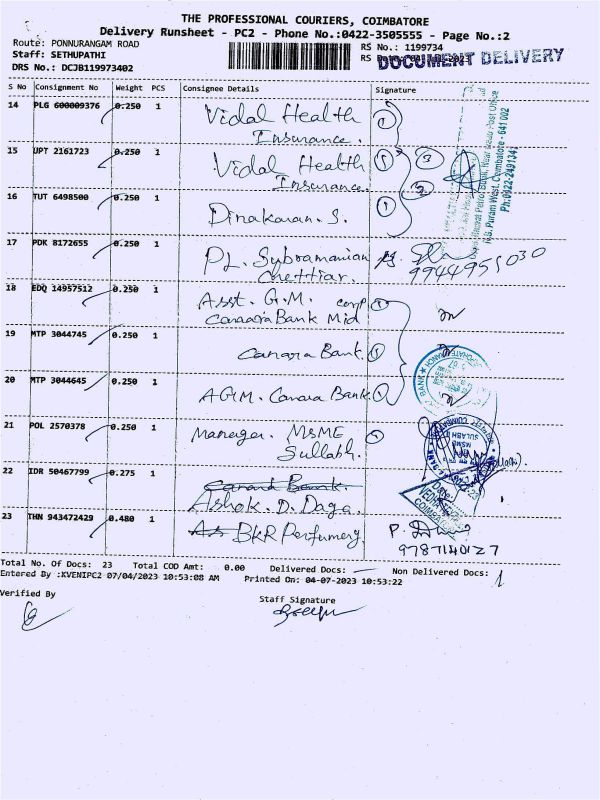 THE PROFESSIONAL COURIERS, COIMBATORE
Delivery Runsheet - PC2 - Phone No.:0422-3505555 - Page No.:2
Route: PONNURANGAM ROAD
Staff: SETHUPATHI
DRS No.: DCJB119973402
RS No.: 1199734
RS
DOCUMENT DELIVERY
S No Consignment No Weight PCS Consignee Details Signature
14 PLG 600009376 0.250 1 Vidal Health Insurance. 1
15 UPT 2161723 0.250 1 Vidal Health Insurance. 1 3
16 TUT 6498500 0.250 1 Dinakaran. S. 1
Near Head Post Office
R.S. Puram West, Coimbatore - 641 002
Ph:0422-2491341
17 PDK 8172655 0.250 1 PL. Subramanian Chettiar. 9944955030
18 EDQ 14957512 0.250 1 Asst. G.M. Canara Bank Mid corp 1
19 MTP 3044745 0.250 1 Canara Bank. 1
20 MTP 3044645 0.250 1 AGM. Canara Bank 1
21 POL 2570378 0.250 1 Manager. MSME Sullabh. 1
MSME
SULABH
22 IDR 50467799 0.275 1 Ashok. D. Daga.
COIMBATORE
23 THN 943472429 0.480 1 BKR Perfumery P.
9787140127
Total No. Of Docs: 23 Total COD Amt: 0.00 Delivered Docs: Non Delivered Docs: 1
Entered By :KVENIPC2 07/04/2023 10:53:08 AM Printed On: 04-07-2023 10:53:22
Verified By
Staff Signature